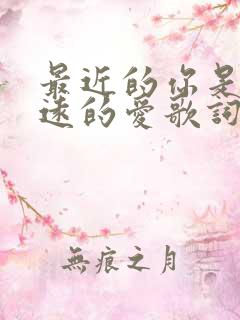 最近的你是
遠的愛歌詞
無痕之月